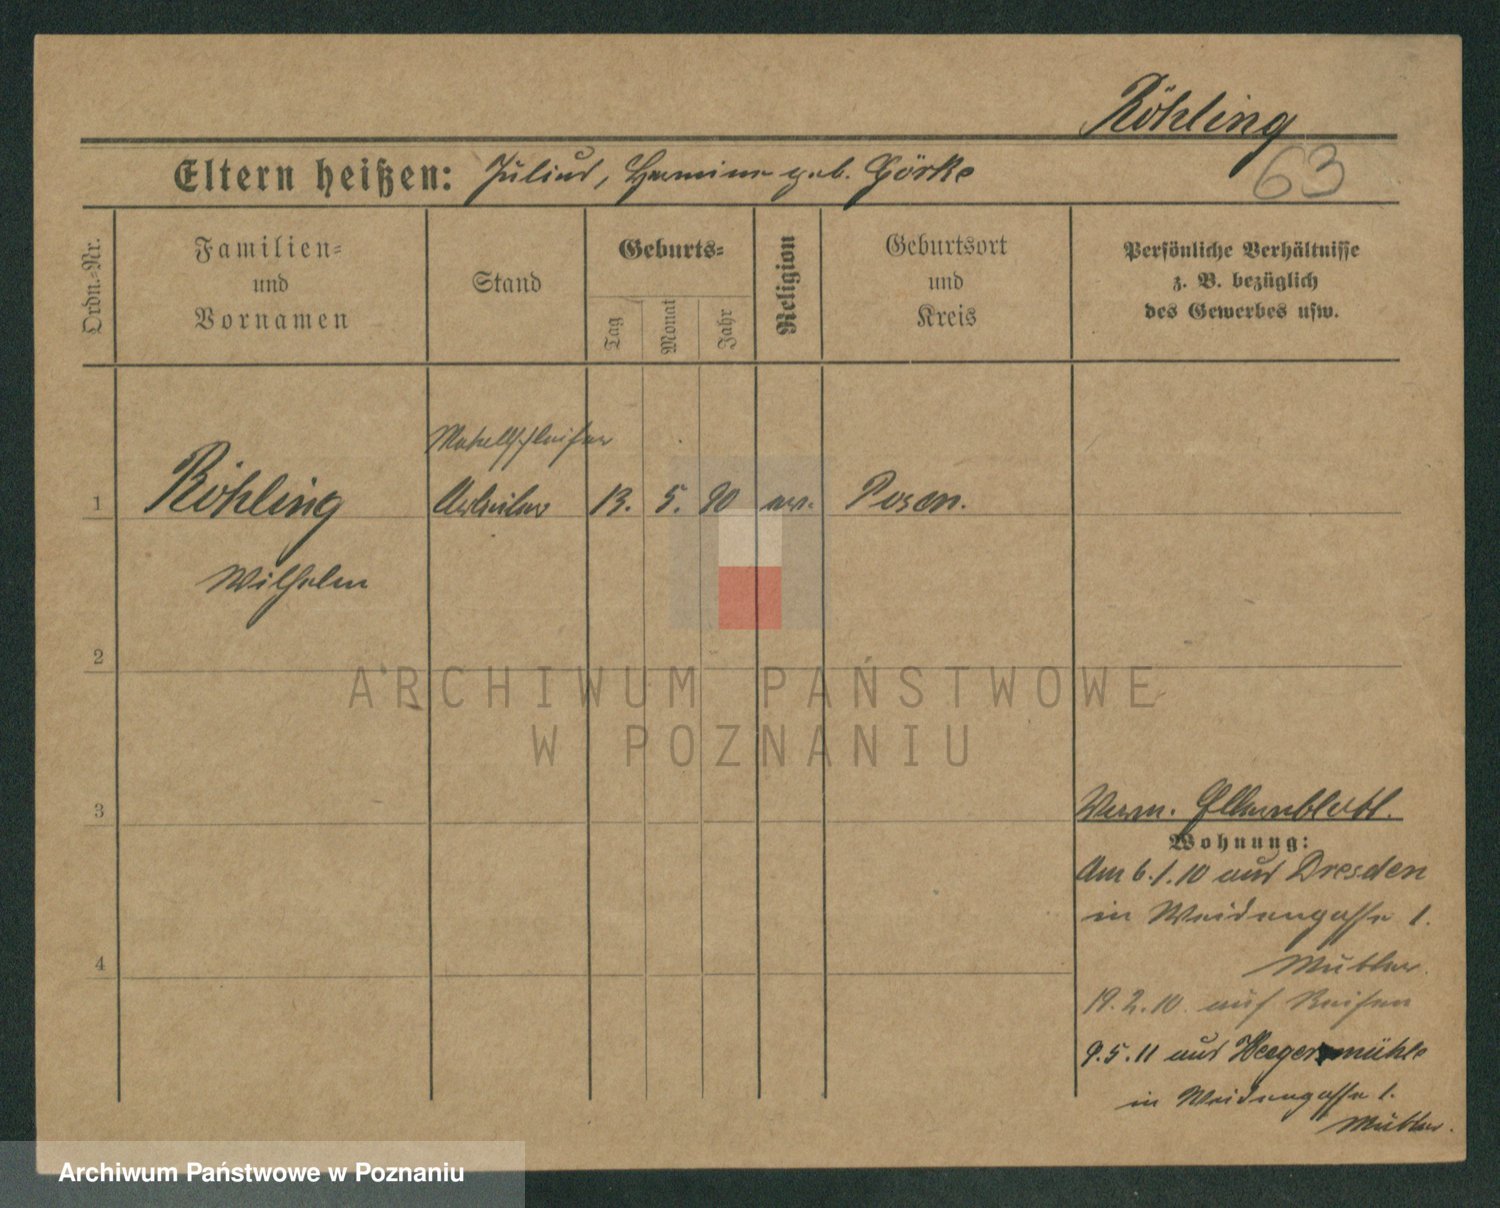 Röhling
63
Eltern heißen: Julius, Hermine geb. Görke
Ordn.-Nr.
Familien-
und
Vornamen
Stand
Geburts-
Tag
Monat
Jahr
Religion
Geburtsort
und
Kreis
Persönliche Verhältnisse
z. B. bezüglich
des Gewerbes usw.
Metallschleifer
1 Röhling Arbeiter 13. 5. 90 ev. Posen.
Wilhelm
2
ARCHIWUM PAŃSTWOWE
W POZNANIU
3
Verm. Elternblatt.
Wohnung:
Am 6.1.10 aus Dresden
in Weidengasse 1.
Mutter.
4
19.2.10. auf Reisen
9.5.11 aus Heegermühle
in Weidengasse 1.
Mutter.
Archiwum Państwowe w Poznaniu